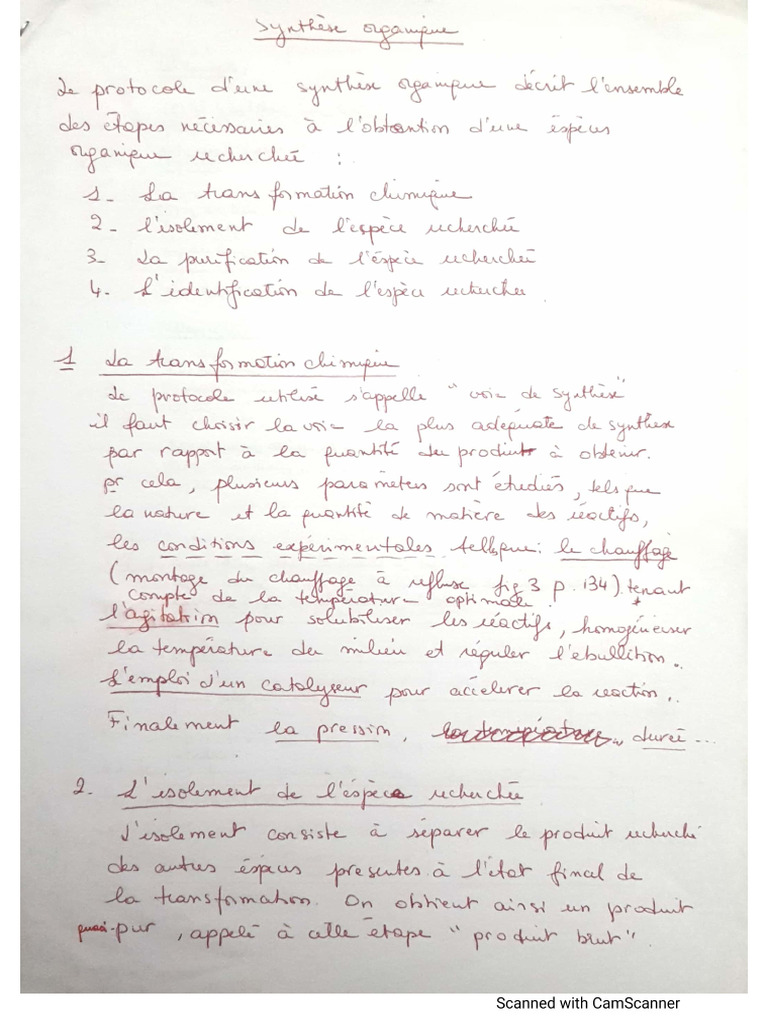 Synthèse organique
Le protocole d'une synthèse organique décrit l'ensemble
des étapes nécessaires à l'obtention d'une éspèces
organique recherchée :
1- La transformation chimique
2- l'isolement de l'espèce recherchée
3- La purification de l'éspèce recherchée
4. L'identification de l'espèce recherchée
1 La transformation chimique
Le protocole utilisé s'appelle "voie de synthèse"
il faut choisir la voie la plus adéquate de synthèse
par rapport à la quantité du produit à obtenir.
pr cela, plusieurs paramèters sont étudiés, tels que
la nature et la quantité de matière des réactifs,
les conditions expérimentales telsque: le chauffage
(montage du chauffage à refluxe fig 3 p. 134) tenant
compte de la température optimale +
l'agitation pour solubiliser les réactifs, homogénéiser
la température du milieu et réguler l'ébullition..
L'emploi d'un catalyseur pour accélerer la réaction..
Finalement la pression, .. dureé ...
2. L'isolement de l'éspèce recherchée
L'isolement consiste à séparer le produit recherché
des autres éspèces presentes à l'état final de
la transformation. On obtient ainsi un produit
quasi-pur, appelé à cette étape "produit brut".
Scanned with CamScanner